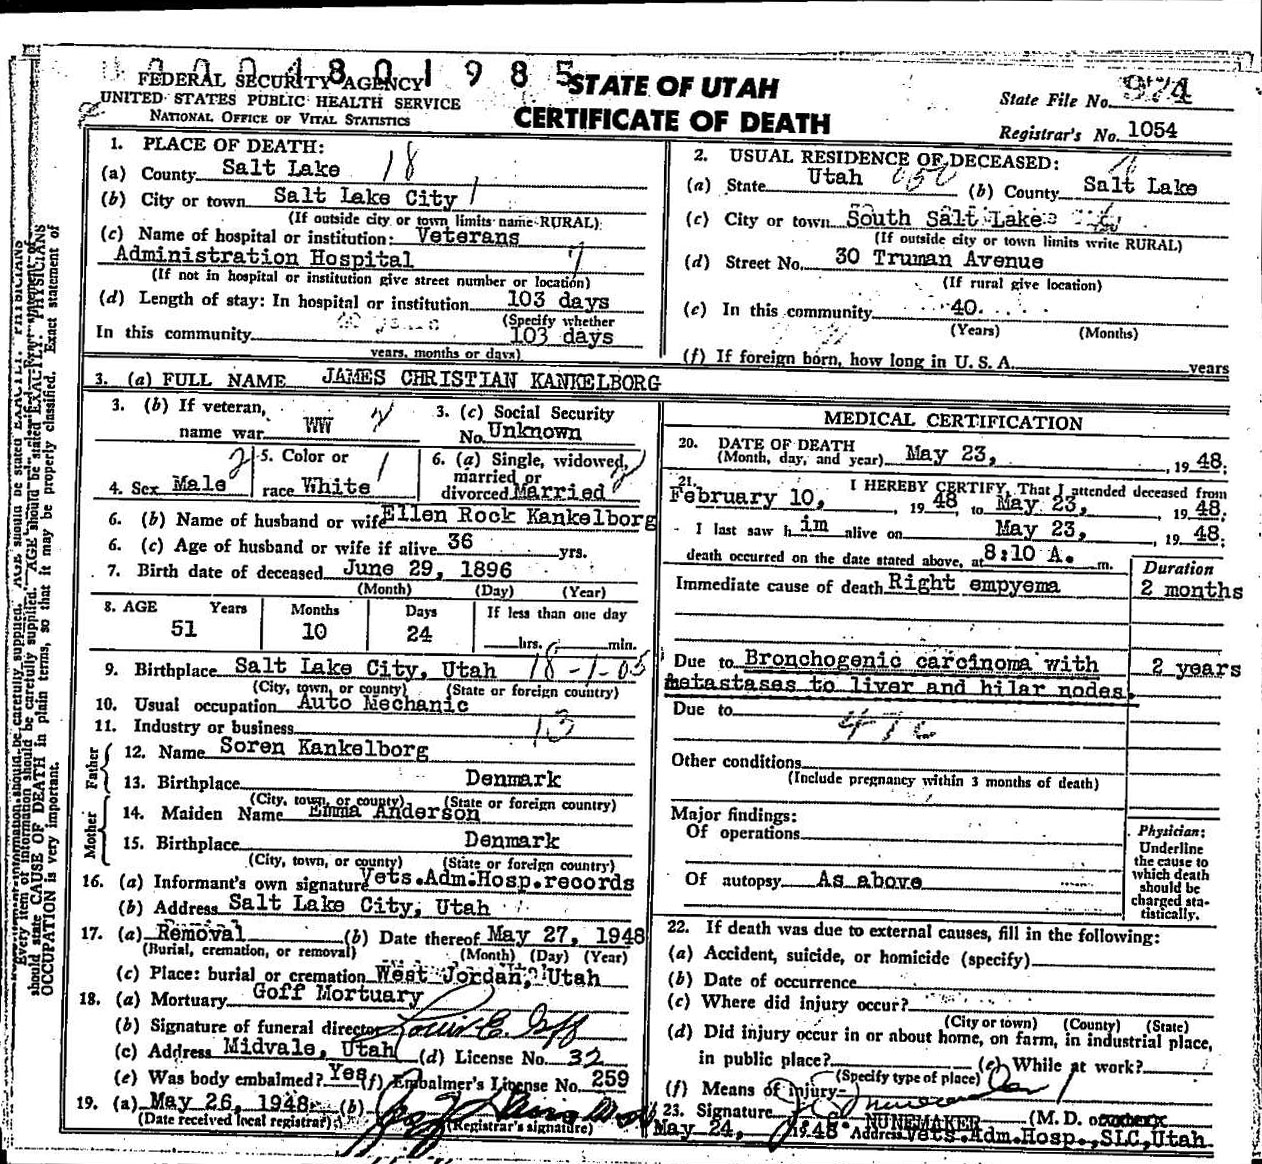 0 0 0 4 8 0 1 9 8 5
FEDERAL SECURITY AGENCY
UNITED STATES PUBLIC HEALTH SERVICE
NATIONAL OFFICE OF VITAL STATISTICS
STATE OF UTAH
CERTIFICATE OF DEATH
State File No. 974
Registrar's No. 1054
1. PLACE OF DEATH:
(a) County Salt Lake 18
(b) City or town Salt Lake City 1
(If outside city or town limits name RURAL)
(c) Name of hospital or institution: Veterans
Administration Hospital
(If not in hospital or institution give street number or location)
(d) Length of stay: In hospital or institution 103 days
(Specify whether
In this community 103 days
years, months or days)
2. USUAL RESIDENCE OF DECEASED:
(a) State Utah (b) County Salt Lake
(c) City or town South Salt Lake
(If outside city or town limits write RURAL)
(d) Street No. 30 Truman Avenue
(If rural give location)
(e) In this community 40
(Years) (Months)
(f) If foreign born, how long in U. S. A. years
3. (a) FULL NAME JAMES CHRISTIAN KANKELBORG
3. (b) If veteran,
name war WW 2
3. (c) Social Security
No. Unknown
4. Sex Male 2
5. Color or
race White 1
6. (a) Single, widowed,
married or
divorced Married 2
6. (b) Name of husband or wife Ellen Rock Kankelborg
6. (c) Age of husband or wife if alive 36 yrs.
7. Birth date of deceased June 29, 1896
(Month) (Day) (Year)
8. AGE Years Months Days If less than one day
51 10 24 hrs. min.
9. Birthplace Salt Lake City, Utah 18-1-05
(City, town, or county) (State or foreign country)
10. Usual occupation Auto Mechanic
11. Industry or business 13
Father
12. Name Soren Kankelborg
13. Birthplace Denmark
(City, town, or county) (State or foreign country)
Mother
14. Maiden Name Emma Anderson
15. Birthplace Denmark
(City, town, or county) (State or foreign country)
16. (a) Informant's own signature Vets.Adm.Hosp.records
(b) Address Salt Lake City, Utah
17. (a) Removal (b) Date thereof May 27, 1948
(Burial, cremation, or removal) (Month) (Day) (Year)
(c) Place: burial or cremation West Jordan, Utah
18. (a) Mortuary Goff Mortuary
(b) Signature of funeral director Louis E. Goff
(c) Address Midvale, Utah (d) License No. 32
(e) Was body embalmed? Yes (f) Embalmer's License No. 259
19. (a) May 26, 1948 (b)
(Date received local registrar) (Registrar's signature)
MEDICAL CERTIFICATION
20. DATE OF DEATH
(Month, day, and year) May 23, , 19 48;
21. I HEREBY CERTIFY, That I attended deceased from
February 10, , 19 48 to May 23, , 19 48;
I last saw h im alive on May 23, , 19 48;
death occurred on the date stated above, at 8:10 A. m.
Duration
Immediate cause of death Right empyema 2 months
Due to Bronchogenic carcinoma with 2 years
metastases to liver and hilar nodes.
Due to
Other conditions
(Include pregnancy within 3 months of death)
Major findings:
Of operations
Of autopsy As above
Physician:
Underline
the cause to
which death
should be
charged sta-
tistically.
22. If death was due to external causes, fill in the following:
(a) Accident, suicide, or homicide (specify)
(b) Date of occurrence
(c) Where did injury occur?
(City or town) (County) (State)
(d) Did injury occur in or about home, on farm, in industrial place,
in public place? (e) While at work?
(Specify type of place)
(f) Means of injury
23. Signature J. C. Nunemaker
J.C. NUNEMAKER (M. D. o
May 24, 1948 Address Vets.Adm.Hosp.,SLC,Utah
Every item of information should be carefully supplied. AGE should be stated EXACTLY. PHYSICIANS
should state CAUSE OF DEATH in plain terms, so that it may be properly classified. Exact statement of
OCCUPATION is very important.